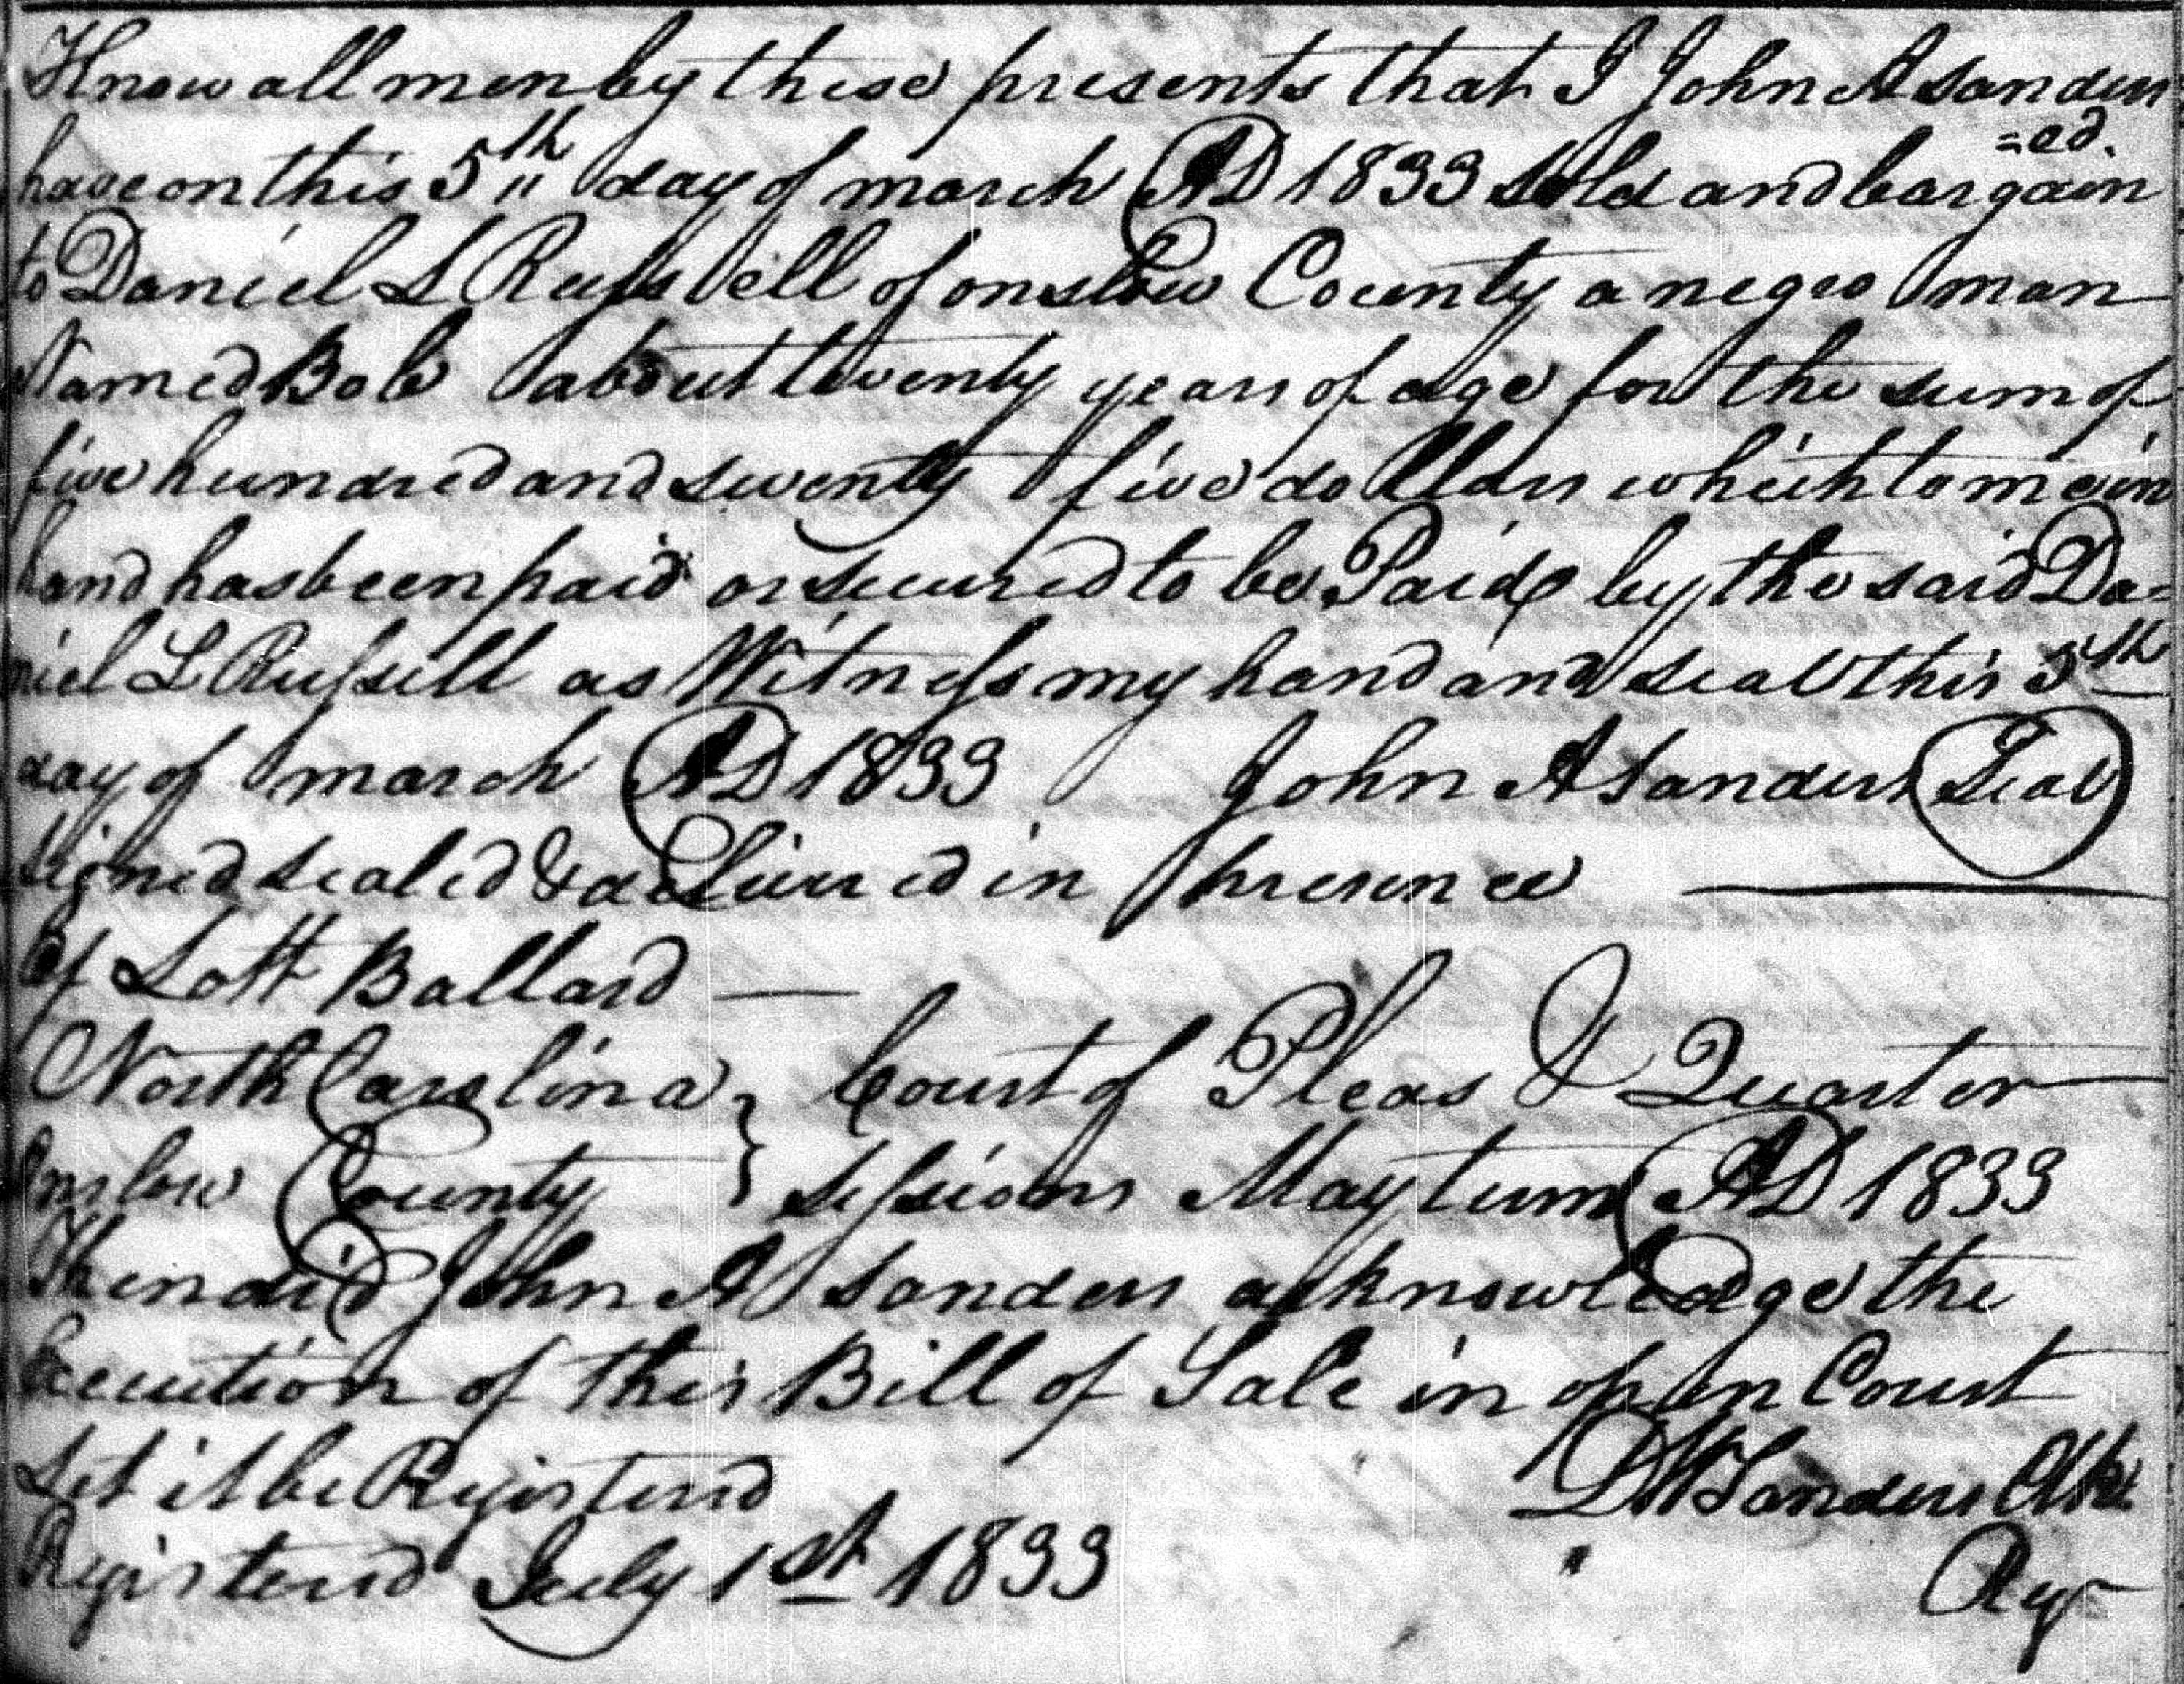 Know all men by these presents that I John A Sanders
have on this 5th day of march AD 1833 sold and bargain =ed.
to Daniel L Russell of onslow County a negro man
Named Bob about twenty years of age for the sum of
five hundred and seventy five dollars which to me in
hand has been paid or secured to be Paid by the said Da=
niel L Russell as Witness my hand and seal this 5th
day of march AD 1833 John A Sanders Seal
Signed sealed & delivered in presence
of Lott Ballard
North Carolina } Court of Pleas & Quarter
Onslow County } sessions May term AD 1833
Then did John A Sanders acknowledge the
Execution of this Bill of Sale in open Court
Let it be Registerd D W Sanders Clk
Registerd July 1st 1833 Regr